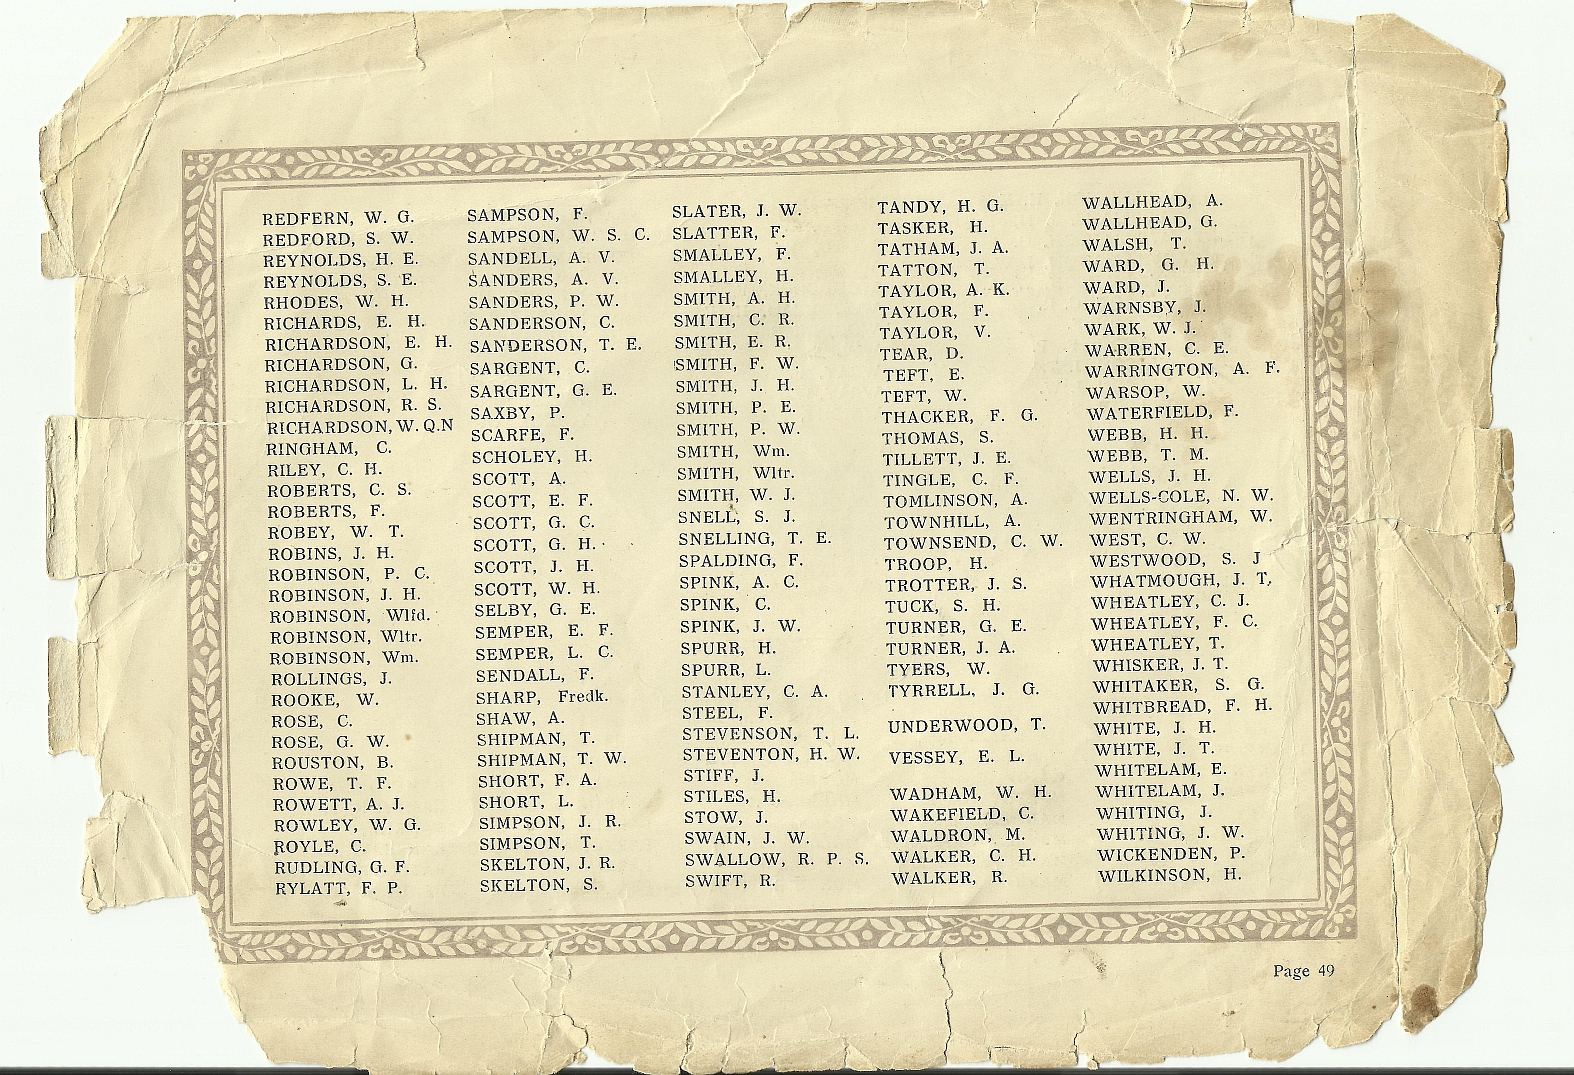 REDFERN, W. G.
REDFORD, S. W.
REYNOLDS, H. E.
REYNOLDS, S. E.
RHODES, W. H.
RICHARDS, E. H.
RICHARDSON, E. H.
RICHARDSON, G.
RICHARDSON, L. H.
RICHARDSON, R. S.
RICHARDSON, W. Q.N
RINGHAM, C.
RILEY, C. H.
ROBERTS, C. S.
ROBERTS, F.
ROBEY, W. T.
ROBINS, J. H.
ROBINSON, P. C.
ROBINSON, J. H.
ROBINSON, Wlfd.
ROBINSON, Wltr.
ROBINSON, Wm.
ROLLINGS, J.
ROOKE, W.
ROSE, C.
ROSE, G. W.
ROUSTON, B.
ROWE, T. F.
ROWETT, A. J.
ROWLEY, W. G.
ROYLE, C.
RUDLING, G. F.
RYLATT, F. P.
SAMPSON, F.
SAMPSON, W. S. C.
SANDELL, A. V.
SANDERS, A. V.
SANDERS, P. W.
SANDERSON, C.
SANDERSON, T. E.
SARGENT, C.
SARGENT, G. E.
SAXBY, P.
SCARFE, F.
SCHOLEY, H.
SCOTT, A.
SCOTT, E. F.
SCOTT, G. C.
SCOTT, G. H.
SCOTT, J. H.
SCOTT, W. H.
SELBY, G. E.
SEMPER, E. F.
SEMPER, L. C.
SENDALL, F.
SHARP, Fredk.
SHAW, A.
SHIPMAN, T.
SHIPMAN, T. W.
SHORT, F. A.
SHORT, L.
SIMPSON, J. R.
SIMPSON, T.
SKELTON, J. R.
SKELTON, S.
SLATER, J. W.
SLATTER, F.
SMALLEY, F.
SMALLEY, H.
SMITH, A. H.
SMITH, C. R.
SMITH, E. R.
SMITH, F. W.
SMITH, J. H.
SMITH, P. E.
SMITH, P. W.
SMITH, Wm.
SMITH, Wltr.
SMITH, W. J.
SNELL, S. J.
SNELLING, T. E.
SPALDING, F.
SPINK, A. C.
SPINK, C.
SPINK, J. W.
SPURR, H.
SPURR, L.
STANLEY, C. A.
STEEL, F.
STEVENSON, T. L.
STEVENTON, H. W.
STIFF, J.
STILES, H.
STOW, J.
SWAIN, J. W.
SWALLOW, R. P. S.
SWIFT, R.
TANDY, H. G.
TASKER, H.
TATHAM, J. A.
TATTON, T.
TAYLOR, A. K.
TAYLOR, F.
TAYLOR, V.
TEAR, D.
TEFT, E.
TEFT, W.
THACKER, F. G.
THOMAS, S.
TILLETT, J. E.
TINGLE, C. F.
TOMLINSON, A.
TOWNHILL, A.
TOWNSEND, C. W.
TROOP, H.
TROTTER, J. S.
TUCK, S. H.
TURNER, G. E.
TURNER, J. A.
TYERS, W.
TYRRELL, J. G.
UNDERWOOD, T.
VESSEY, E. L.
WADHAM, W. H.
WAKEFIELD, C.
WALDRON, M.
WALKER, C. H.
WALKER, R.
WALLHEAD, A.
WALLHEAD, G.
WALSH, T.
WARD, G. H.
WARD, J.
WARNSBY, J.
WARK, W. J.
WARREN, C. E.
WARRINGTON, A. F.
WARSOP, W.
WATERFIELD, F.
WEBB, H. H.
WEBB, T. M.
WELLS, J. H.
WELLS-COLE, N. W.
WENTRINGHAM, W.
WEST, C. W.
WESTWOOD, S. J
WHATMOUGH, J. T,
WHEATLEY, C. J.
WHEATLEY, F. C.
WHEATLEY, T.
WHISKER, J. T.
WHITAKER, S. G.
WHITBREAD, F. H.
WHITE, J. H.
WHITE, J. T.
WHITELAM, E.
WHITELAM, J.
WHITING, J.
WHITING, J. W.
WICKENDEN, P.
WILKINSON, H.
Page 49